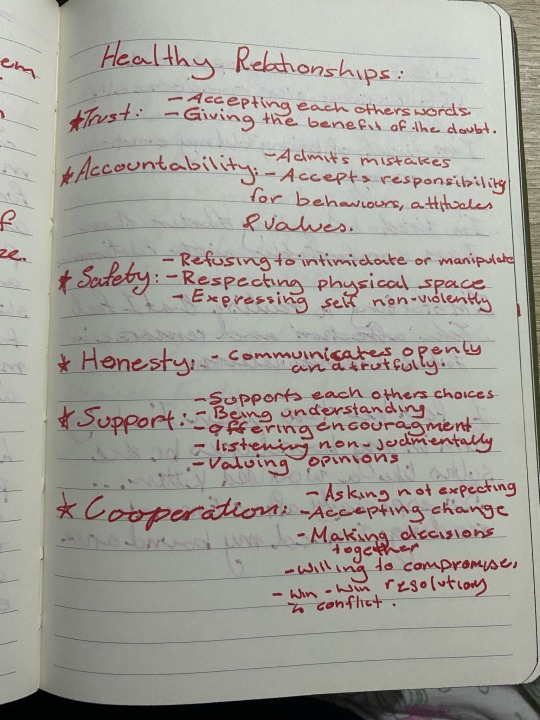 em
Healthy Relationships:
★Trust: - Accepting each others words.
- Giving the benefit of the doubt.
★Accountability: - Admits mistakes
- Accepts responsibility
for behaviours, attitudes
& values.
f
ze.
- Refusing to intimidate or manipulate
★Safety: - Respecting physical space
- Expressing self non-violently
★ Honesty: - Communicates openly
and trutfully.
- Supports each others choices
★Support: - Being understanding
- offering encouragment
- listening non-judmentally
- Valuing opinions
★ Cooperation: - Asking not expecting
- Accepting change
- Making decisions
together
- Willing to compromise,
- Win - Win resolutions
to conflict.